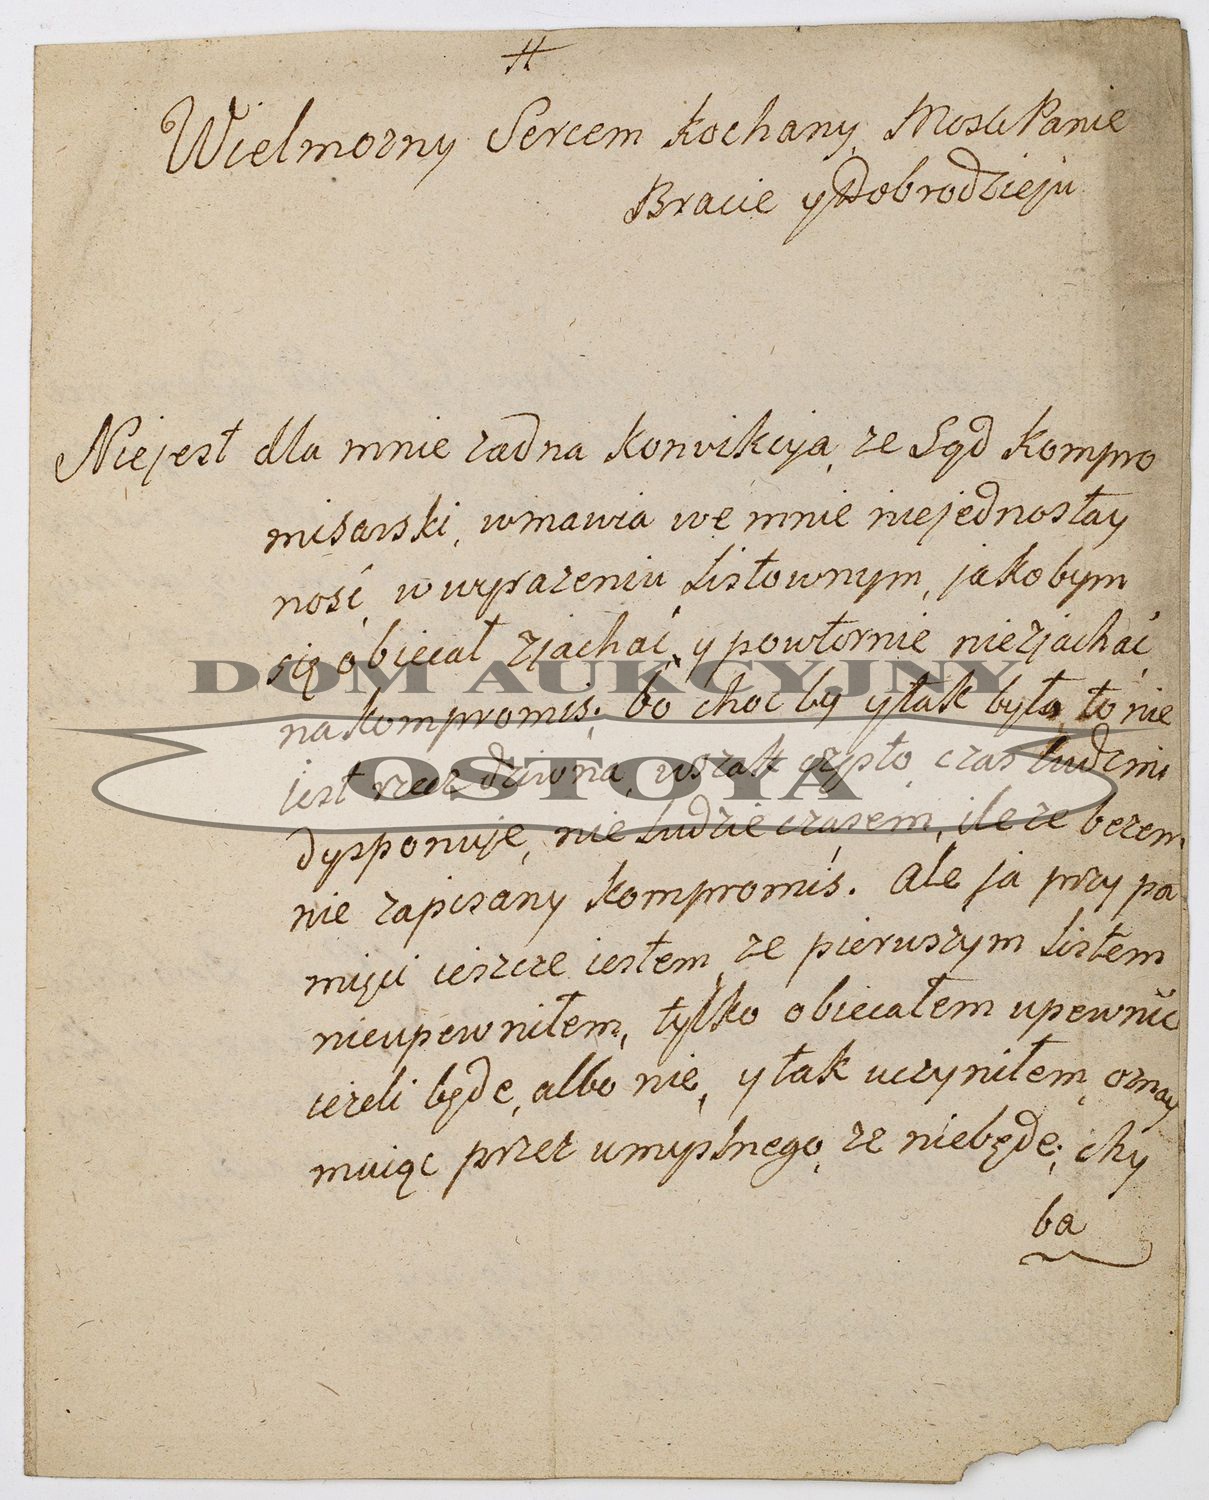 #
Wielmozny Sercem kochany Mosci Panie
Bracie y Dobrodzieju
Niejest dla mnie zadna konvikcya, ze Sąd kompro
misarski, wmawia we mnie niejednostay
ność, w wyrazeniu Listownym, jakobym
się obiecał zjachać, y powtornie niezjachać
na kompromis; bo choc by y tak było, to nie
DOM AUKCYJNY
OSTOYA
jest rzecz dziwna, wszak często czas Ludzmi
dysponuje, nie Ludzie czasem, ile ze bezem
nie zapisany kompromis. Ale ja przy pa
mięci ieszcze iestem, ze pierwszym Listem
nieupewniłem, tylko obiecałem upewnić
iezeli będe, albo nie, y tak uczyniłem, oznay
muiąc przez umyslnego, ze niebędę; chy
ba